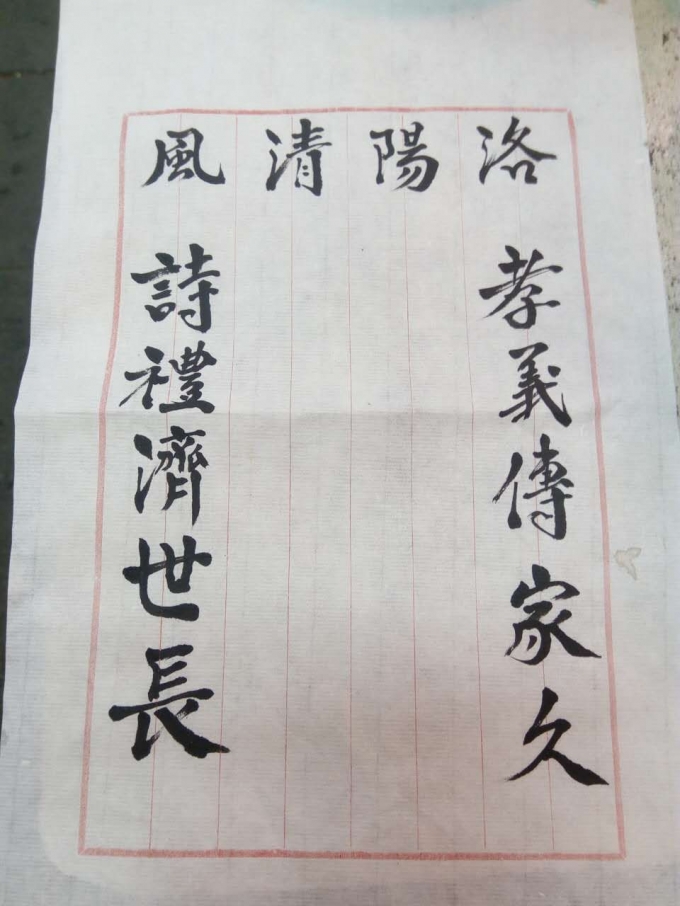 洛陽清風
孝義傳家久
詩禮濟世長